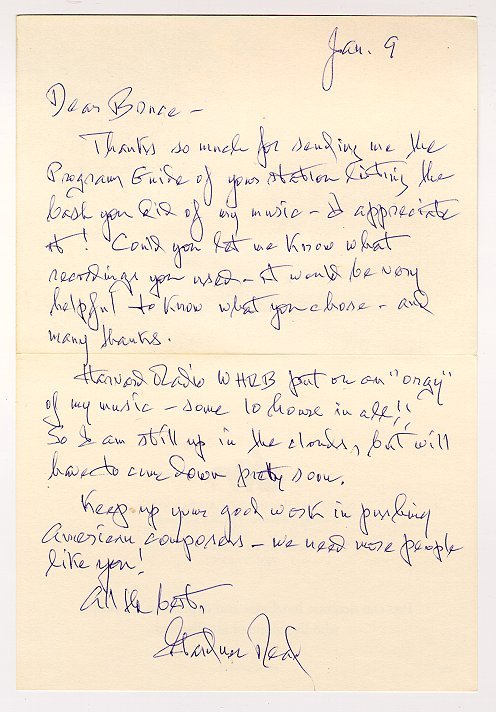 Jan. 9
Dear Bruce –
Thanks so much for sending me the
Program Guide of your station listing the
bash you did of my music – I appreciate
it! Could you let me know what
recordings you used – it would be very
helpful to know what you chose – and
many thanks.
Harvard Radio WHRB put on an "orgy"
of my music – some 10 hours in all!!
So I am still up in the clouds, but will
have to come down pretty soon.
Keep up your good work in pushing
American composers – we need more people
like you!
All the best,
Gardner Read